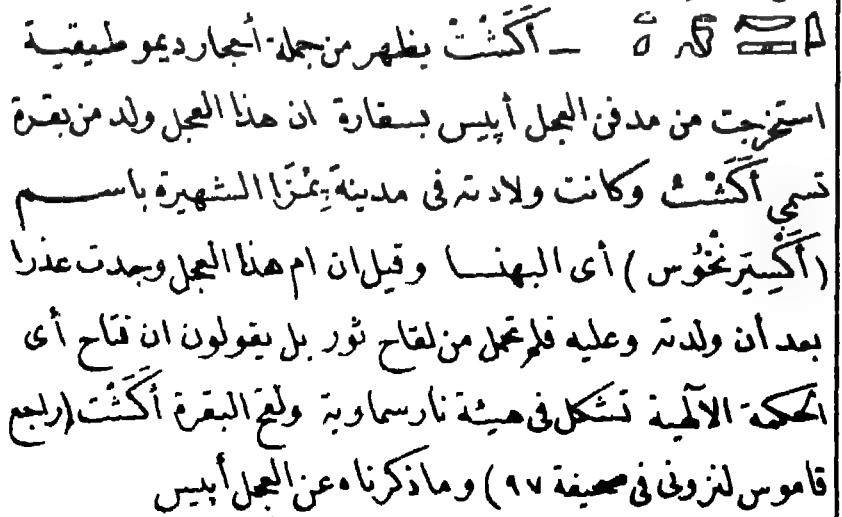 ـ أَكَشْتْ يظهر من جملة أحجار ديموطيقية
استخرجت من مدفن العجل أپيس بسقارة ان هذا العجل ولد من بقرة
تسمى أَكَشْتْ وكانت ولادته فى مدينة پِمْزَا الشهيرة باسم
(أُكْسِيِرنْخُوس) أى البهنسا وقيل ان ام هذا العجل وجدت عذرا
بعد أن ولدته وعليه فلم تحمل من لقاح ثور بل يقولون ان فتاح أى
الحكمة الآلهية تشكل فى هيئة نار سماوية ولقح البقرة أكَشْت (راجع
قاموس لنزونى فى صحيفة ٩٧) وما ذكرناه عن العجل أپيس